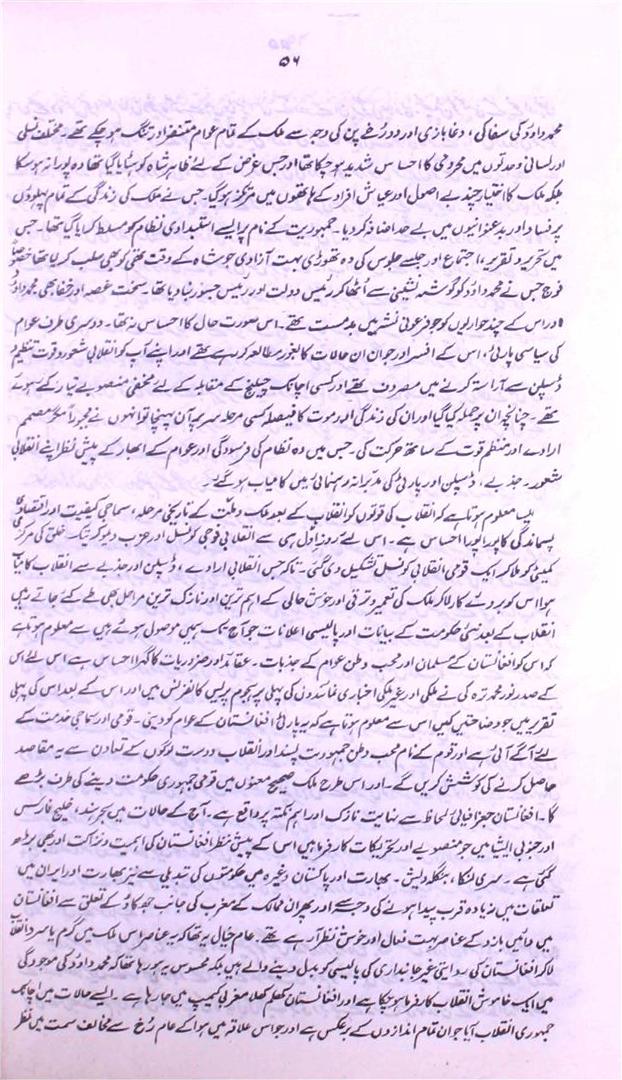 ۵۶
محمد داؤد کی سفاکی، دغا بازی اور دور رُخے پن کی وجہ سے ملک کے تمام عوام متنفر اور تنگ ہو چکے تھے۔ مختلف نسلی
اور لسانی وحدتوں میں محرومی کا احساس شدید ہو چکا تھا اور جس غرض کے لئے ظاہر شاہ کو ہٹایا گیا تھا وہ پورا نہ ہو سکا
بلکہ ملک کا اختیار چند بے اصول اور عیاش افراد کے ہاتھوں میں مرکوز ہو گیا۔ جس نے ملک کی زندگی کے تمام پہلوؤں
پر فساد اور بدعنوانیوں میں بے حد اضافہ کر دیا۔ جمہوریت کے نام پر ایسے استبدادی نظام کو مسلط کیا گیا تھا۔ جس
میں تحریر و تقریر، اجتماع اور جلسے جلوس کی وہ تھوڑی بہت آزادی جو شاہ کے وقت تھی کو بھی سلب کر لیا تھا خصوصاً
فوج جس نے محمد داؤد کو گوشہ نشینی سے اُٹھا کر رئیس دولت اور رئیس جمہور بنا دیا تھا سخت غصہ اور خفا تھی محمد داؤد
اور اس کے چند حواریوں کو جو فرعونی نشہ میں بدمست تھے۔ اس صورت حال کا احساس نہ تھا۔ دوسری طرف عوام
کی سیاسی پارٹی، اس کے افسر اور جوان ان حالات کا بغور مطالعہ کر رہے تھے اور اپنے آپ کو انقلابی شعور و قوت تنظیم و
ڈسپلن سے آراستہ کرنے میں مصروف تھے اور کسی اچانک چیلنج کے مقابلہ کے لئے مخفی منصوبے تیار کئے ہوئے
تھے۔ چنانچہ ان پر حملہ کیا گیا اور ان کی زندگی اور موت کا فیصلہ کسی مرحلہ سر پر آن پہنچا تو انہوں نے مجبوراً مگر مصمم
ارادے اور منظم قوت کے ساتھ حرکت کی۔ جس میں وہ نظام کی فرسودگی اور عوام کے ابھار کے پیش نظر اپنے انقلابی
شعور، جذبے، ڈسپلن اور پارٹی کی مدبرانہ رہنمائی میں کامیاب ہو گئے۔
ایسا معلوم ہوتا ہے کہ انقلاب کی قوتوں کو انقلاب کے بعد ملک و ملت کے تاریخی مرحلہ، سماجی کیفیت اور اقتصادی
پسماندگی کا پورا پورا احساس ہے۔ اس لئے روز اول ہی سے انقلابی فوجی کونسل اور حزب دموکرتیک خلق کی مرکزی
کمیٹی کو ملا کر ایک قومی انقلابی کونسل تشکیل دی گئی۔ تاکہ جس انقلابی ارادے، ڈسپلن اور جذبے سے انقلاب کامیاب
ہوا اس کو بروئے کار لا کر ملک کی تعمیر و ترقی اور خوش حالی کے اہم ترین اور نازک ترین مراحل بھی طے کئے جاتے رہیں
انقلاب کے بعد نئی حکومت کے بیانات اور پالیسی اعلانات جو آج تک ہمیں موصول ہوئے ہیں سے معلوم ہوتا ہے
کہ اس کو افغانستان کے مسلمان اور محب وطن عوام کے جذبات، عقائد اور ضروریات کا گہرا احساس ہے اس لئے اس
کے صدر نور محمد ترہ کی نے ملکی اور غیر ملکی اخباری نمائندوں کی پہلی پر ہجوم پریس کانفرنس میں اور اس کے بعد اس کی پہلی
تقریر میں جو وضاحتیں کیں اس سے معلوم ہوتا ہے کہ یہ پارٹی افغانستان کے عوام کو دینی۔ قومی اور سماجی خدمت کے
لئے آگے آئی ہے اور قوم کے تمام محب وطن جمہوریت پسند اور انقلاب دوست لوگوں کے تعاون سے یہ مقاصد
حاصل کرنے کی کوشش کریں گے۔ اور اس طرح ملک صحیح معنوں میں قومی جمہوری حکومت دینے کی طرف بڑھے
گا۔ افغانستان جغرافیائی لحاظ سے نہایت نازک اور اہم نکتہ پر واقع ہے۔ آج کے حالات میں بحر ہند، خلیج فارس
اور جنوبی ایشیا میں جو منصوبے اور تحریکات کار فرما ہیں اس کے پیش نظر افغانستان کی اہمیت و نزاکت اور بھی بڑھ
گئی ہے۔ سری لنکا، بنگلہ دیش۔ بھارت اور پاکستان وغیرہ میں حکومتوں کی تبدیلی سے نیز بھارت اور ایران میں
تعلقات میں زیادہ قرب پیدا ہونے کی وجہ سے اور پھر ان ممالک کے مغرب کی جانب جھکاؤ کے تعلق سے افغانستان
میں دائیں بازو کے عناصر بہت فعال اور خوش نظر آ رہے تھے۔ عام خیال یہ تھا کہ یہ عناصر اس ملک میں گرم یا سرد انقلاب
لا کر افغانستان کی روایتی غیر جانبداری کی پالیسی کو بدل دینے والے ہیں بلکہ محسوس یہ ہو رہا تھا کہ محمد داؤد کی موجودگی
میں ایک خاموش انقلاب کار فرما ہو چکا ہے اور افغانستان کھلم کھلا مغربی کیمپ میں جا رہا ہے۔ ایسے حالات میں اچانک
جمہوری انقلاب آیا جو ان تمام اندازوں کے برعکس ہے اور جو اس علاقہ میں ہوا کے عام رُخ سے مخالف سمت میں نظر